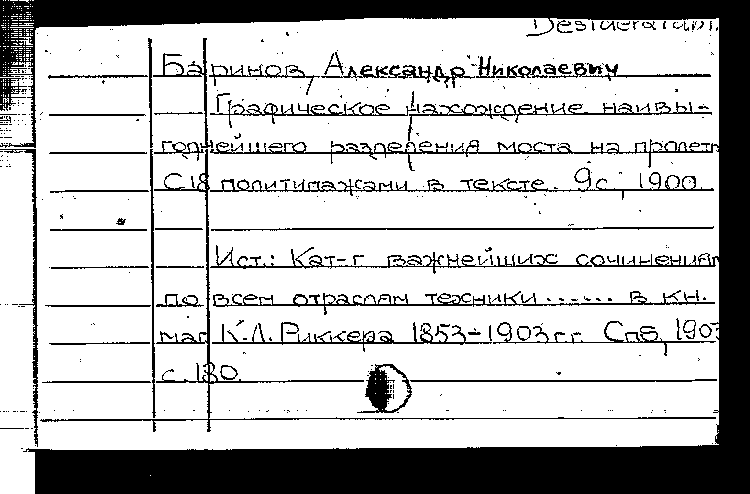 Desiderata
Баринов, Александр Николаевич
Графическое нахождение наивы-
годнейшего разделения моста на пролет
С 18 политипажами в тексте. 9с., 1900.
Ист.: Кат-г важнейших сочинениям
по всем отраслям техники...... в кн.
маг. К.Л. Риккера 1853-1903 г.г. Спб, 1903
с. 180.